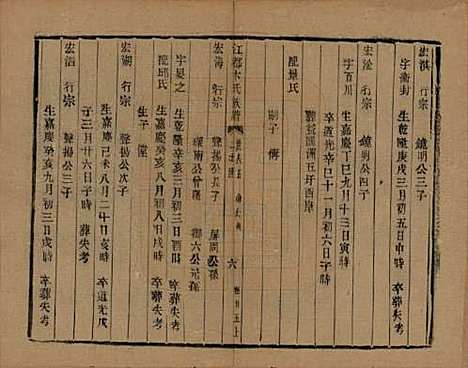 宏淇 行宗 鏡明公三子
字衛封 生乾隆庚戌三月初五日申時 卒葬失考
宏淦 行宗 鏡明公四子
字百川 生嘉慶丁巳九月十三日寅時
卒道光辛巳十一月初六日子時
葬 洲五圩西庫
配景氏
嗣子 傳
江都卞氏族譜 六 卷廿五上
宏海 行宗 聲揚公長子 周公孫
南公曾孫 六公元孫
字 之 生乾隆辛亥三月初三日酉時 卒葬失考
配邱氏 生嘉慶癸亥八月初八日戌時
生子 堂
宏湖 行宗 聲揚公次子
生嘉慶己未八月二十日亥時 卒道光戊
子三月廿六日子時 葬失考
宏滔 行宗 聲揚公三子
生嘉慶癸亥九月初三日亥時 卒葬失考